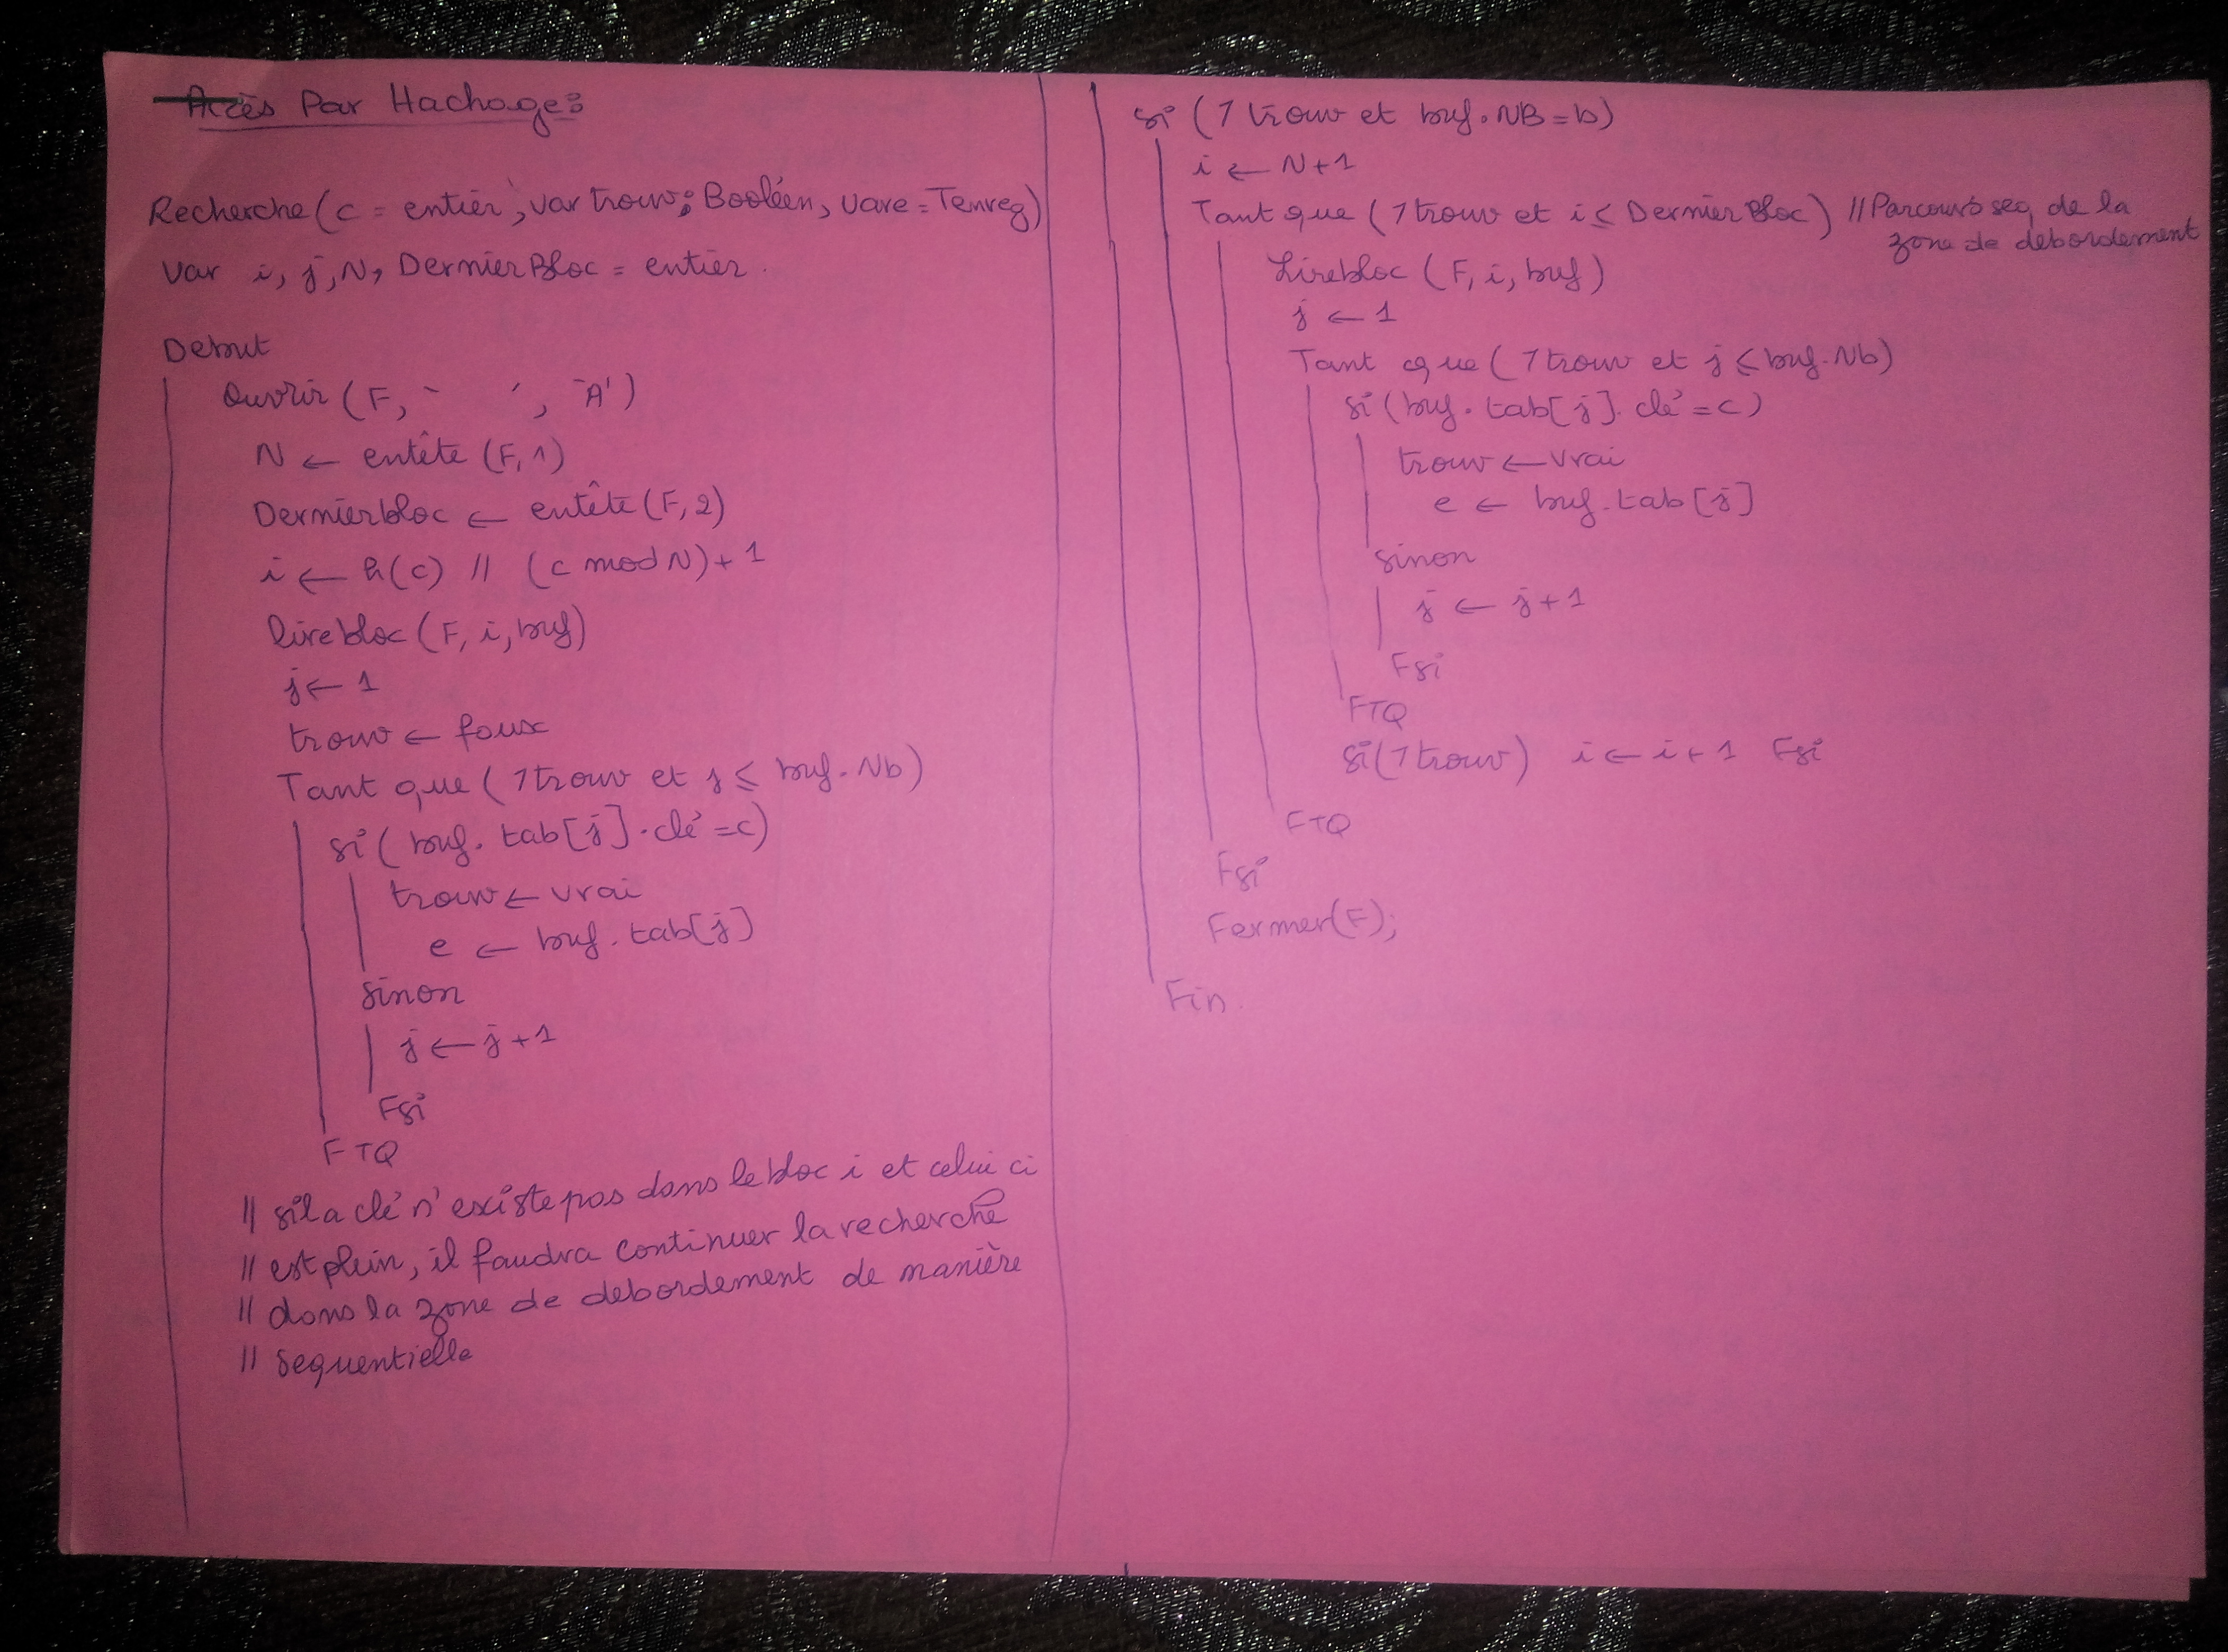 Accès Par Hachage :
Recherche (c = entier, var trouv : Booléen, vare = Tenreg)
Var i, j, N, DernierBloc = entier.
Debut
Ouvrir (F, ` ', `A')
N ← entête (F, 1)
Dernierbloc ← entête (F, 2)
i ← h(c) // (c mod N) + 1
lirebloc (F, i, buf)
j ← 1
trouv ← faux
Tant que ( ⌉ trouv et j ≤ buf. Nb)
si ( buf. tab[j]. clé = c)
trouv ← vrai
e ← buf. tab[j]
sinon
j ← j + 1
Fsi
FTQ
// si la clé n'existe pas dans le bloc i et celui ci
// est plein, il faudra continuer la recherche
// dans la zone de debordement de manière
// sequentielle
si ( ⌉ trouv et buf. NB = b)
i ← N + 1
Tant que ( ⌉ trouv et i ≤ DernierBloc) // Parcours seq de la
zone de debordement
Lirebloc (F, i, buf)
j ← 1
Tant que ( ⌉ trouv et j ≤ buf. Nb)
si (buf. tab[j]. clé = c)
trouv ← vrai
e ← buf. tab[j]
sinon
j ← j + 1
Fsi
FTQ
si ( ⌉ trouv) i ← i + 1 Fsi
FTQ
Fsi
Fermer(F);
Fin.